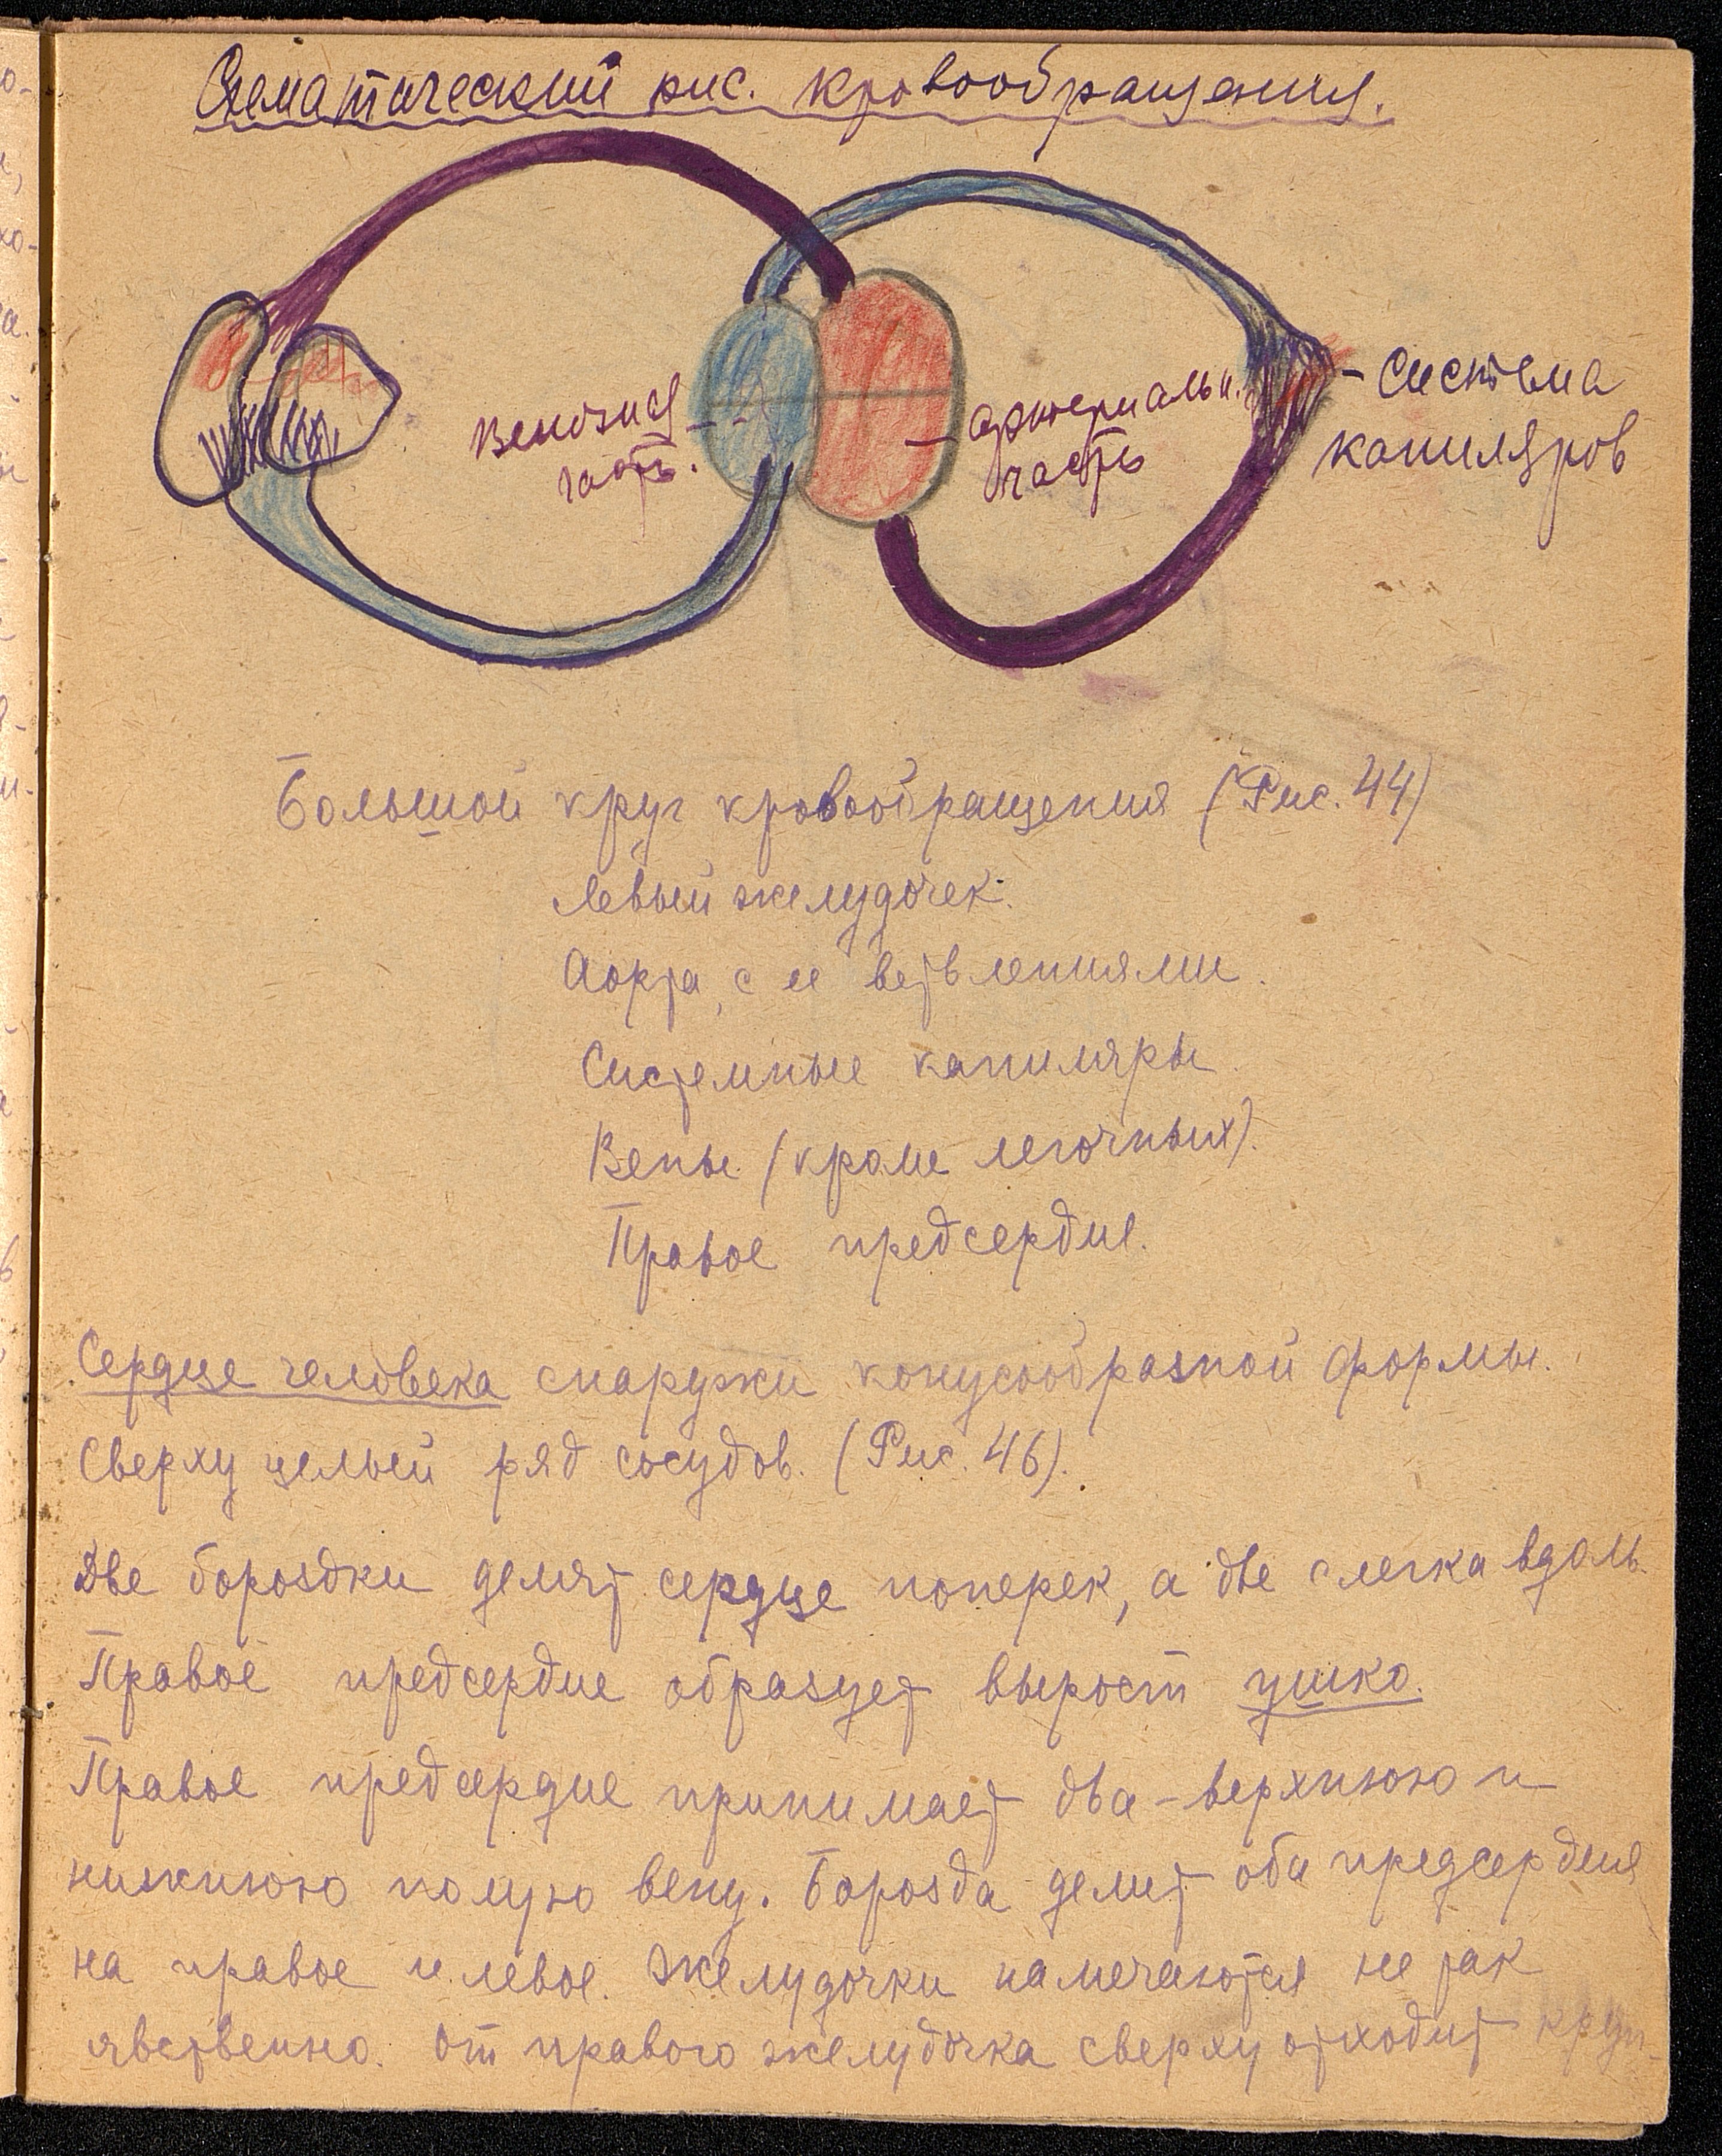 Схематический рис. кровообращения.
Венозная часть.
артериальн. часть
- Система капиляров
Большой круг кровообращения (Рис. 44)
Левый желудочек.
Аорта, с ее ветвлениями.
Системные капиляры.
Вены (кроме легочных).
Правое предсердие.
Сердце человека снаружи конусообразной формы.
Сверху целый ряд сосудов. (Рис. 46).
Две бороздки делят сердце поперек, а две слегка вдоль.
Правое предсердие образует вырост ушко.
Правое предсердие принимает два - верхнюю и
нижнюю полую вену. Борозда делит оба предсердия
на правое и левое. Желудочки намечаются не так
явственно. От правого желудочка сверху отходит круп-